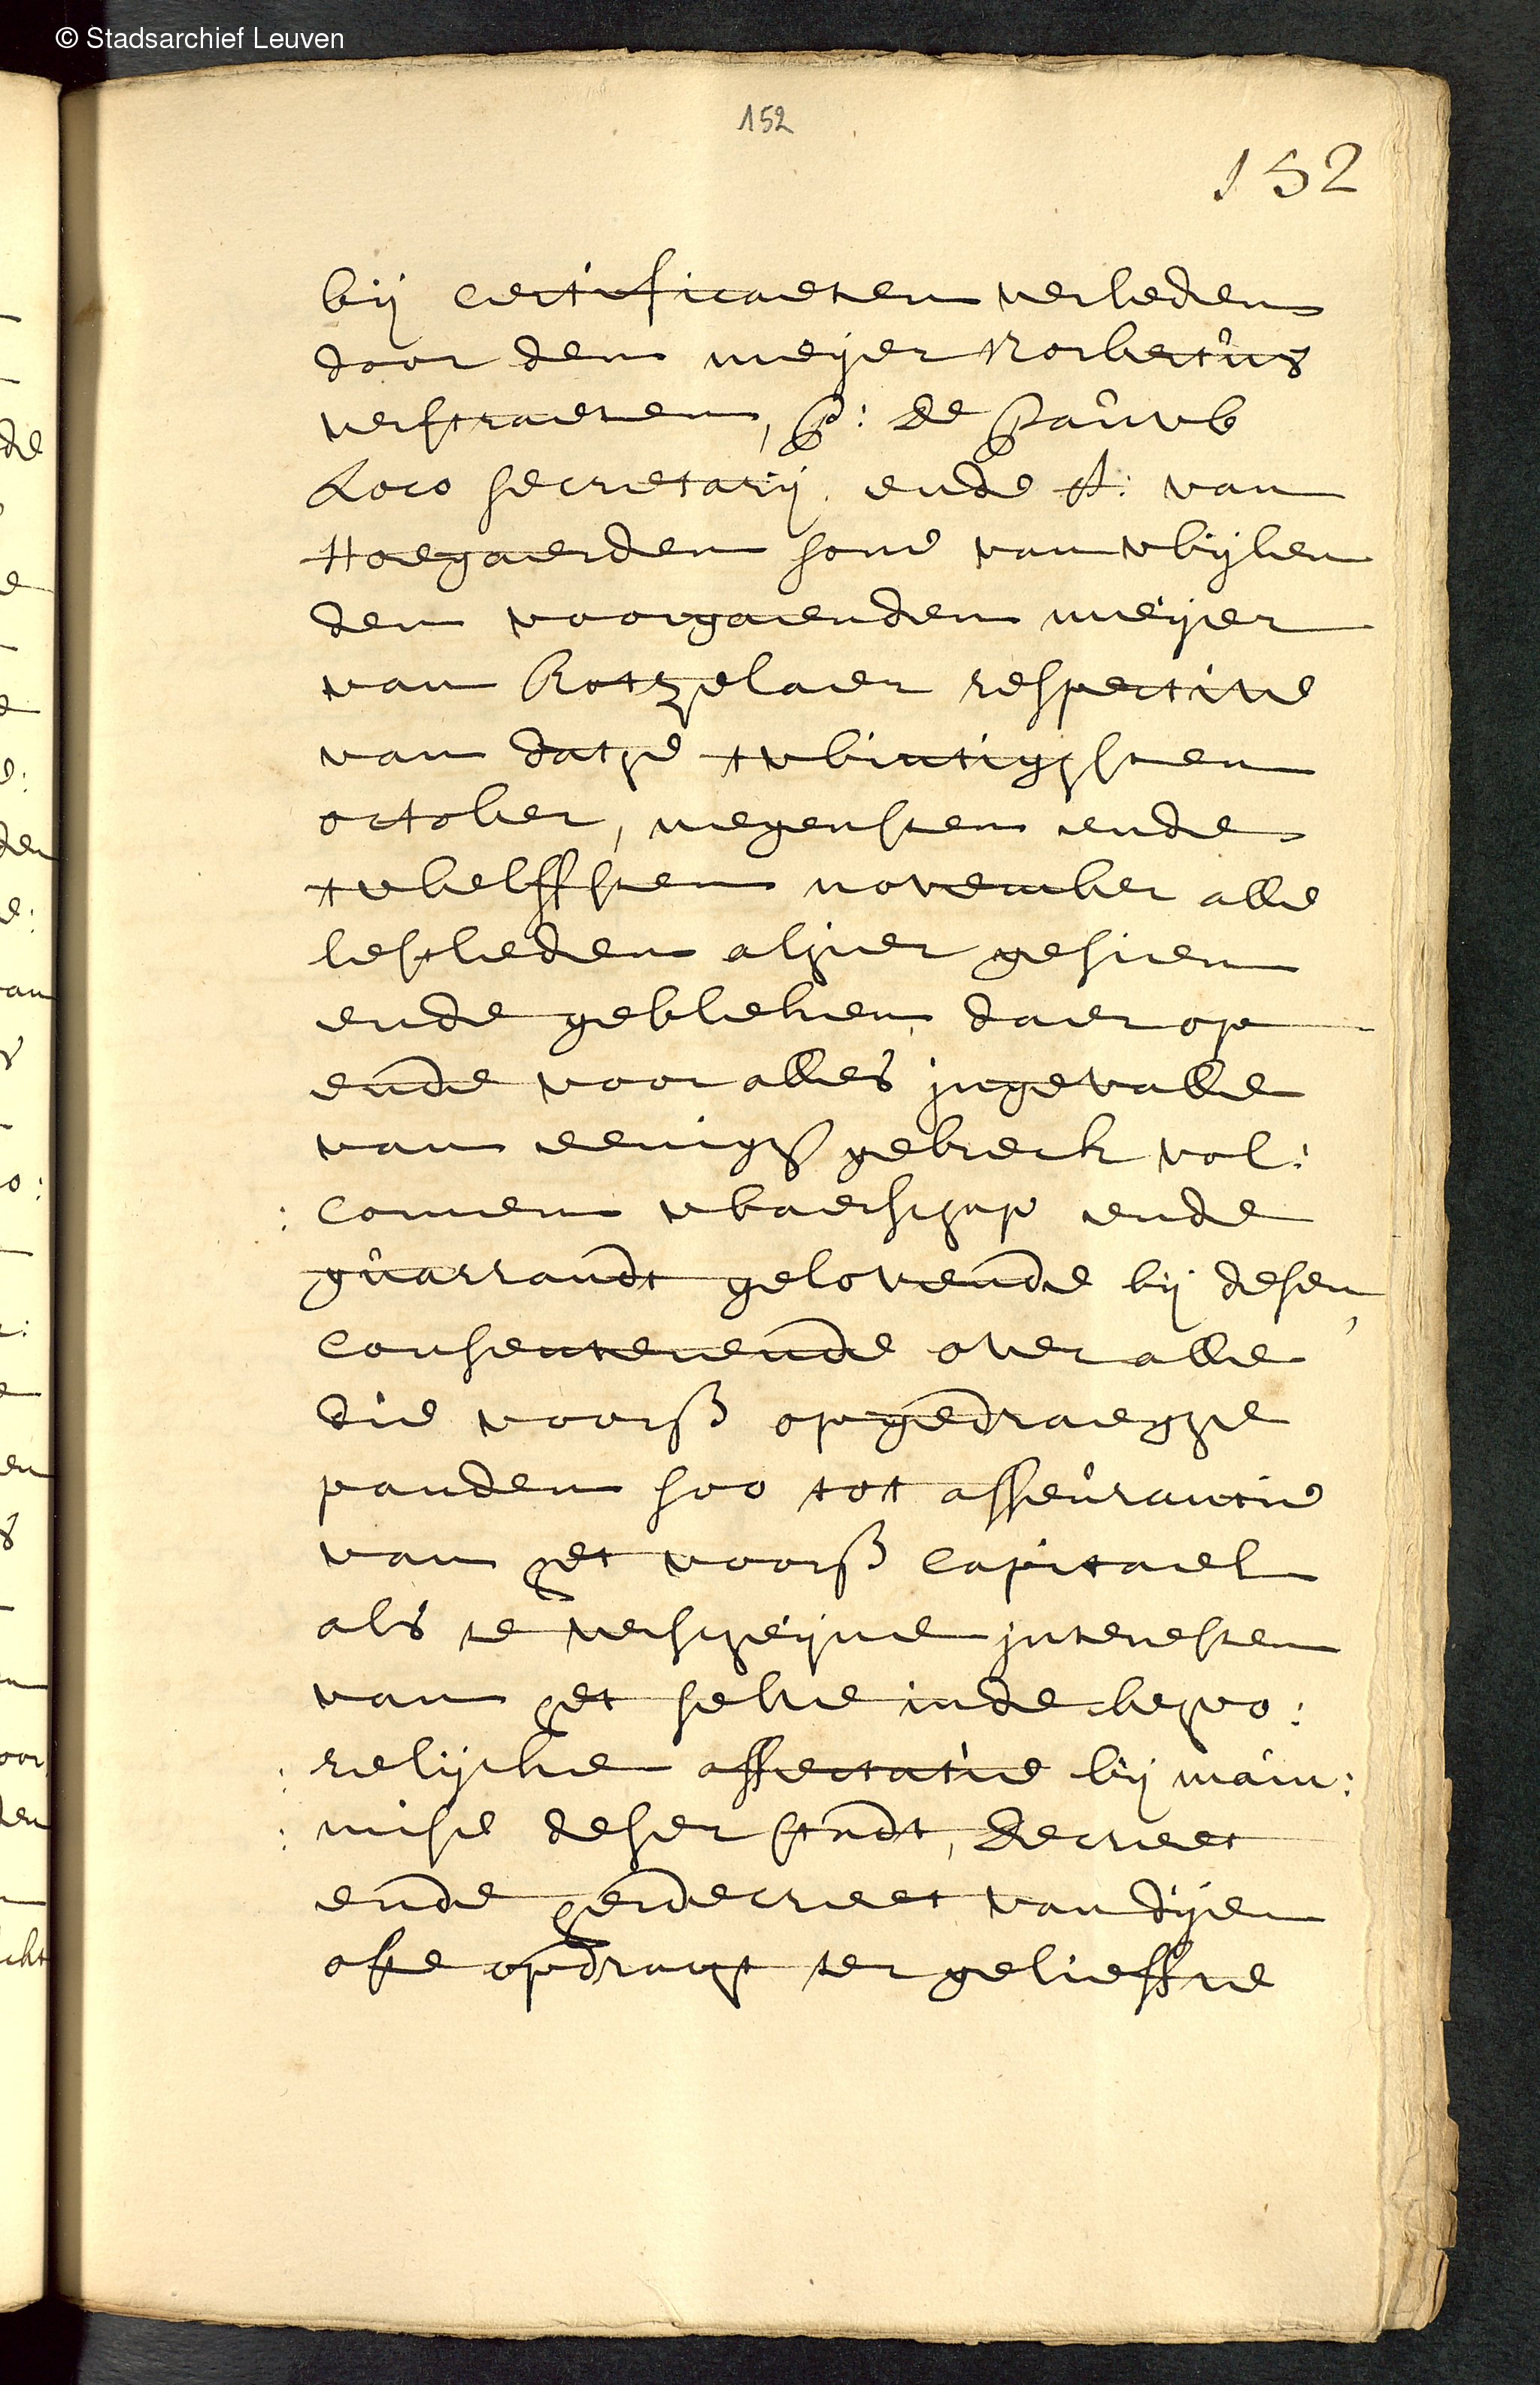 © Stadsarchief Leuven
152
152
bij certificaeten verleden
door den meijer Norbertus
verstraeten, P: De Pauw
Loco secretarij ende A: van
Hoegaerden sone van wijlen
den voorgaenden meijer
van Rotzelaer respective
van dathe twintighsten
october, negensten ende
twelffsten november alle
lestleden alhier gesien
ende gebleken, daer op
ende voor alles ingevalle
van eenigh gebreck vol:
:comen waerschap ende
guarrandt gelovende bij desen,
consenterende over alle
die voorss opgedraeghe
panden soo tot asseurantie
van het voorss capitael
als te verscheijne interesten
van het selve inde behoo:
:relijcke affectatie bij main:
:mise deser stadt, Decreet
ende herdecreet van dijen
ofte opdracht ter gelieffve